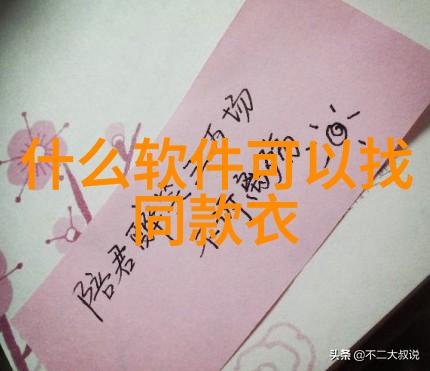 什么软件可以找
同款衣
陪君醉笑三百场
不诉离殇
头条 @不二大叔说